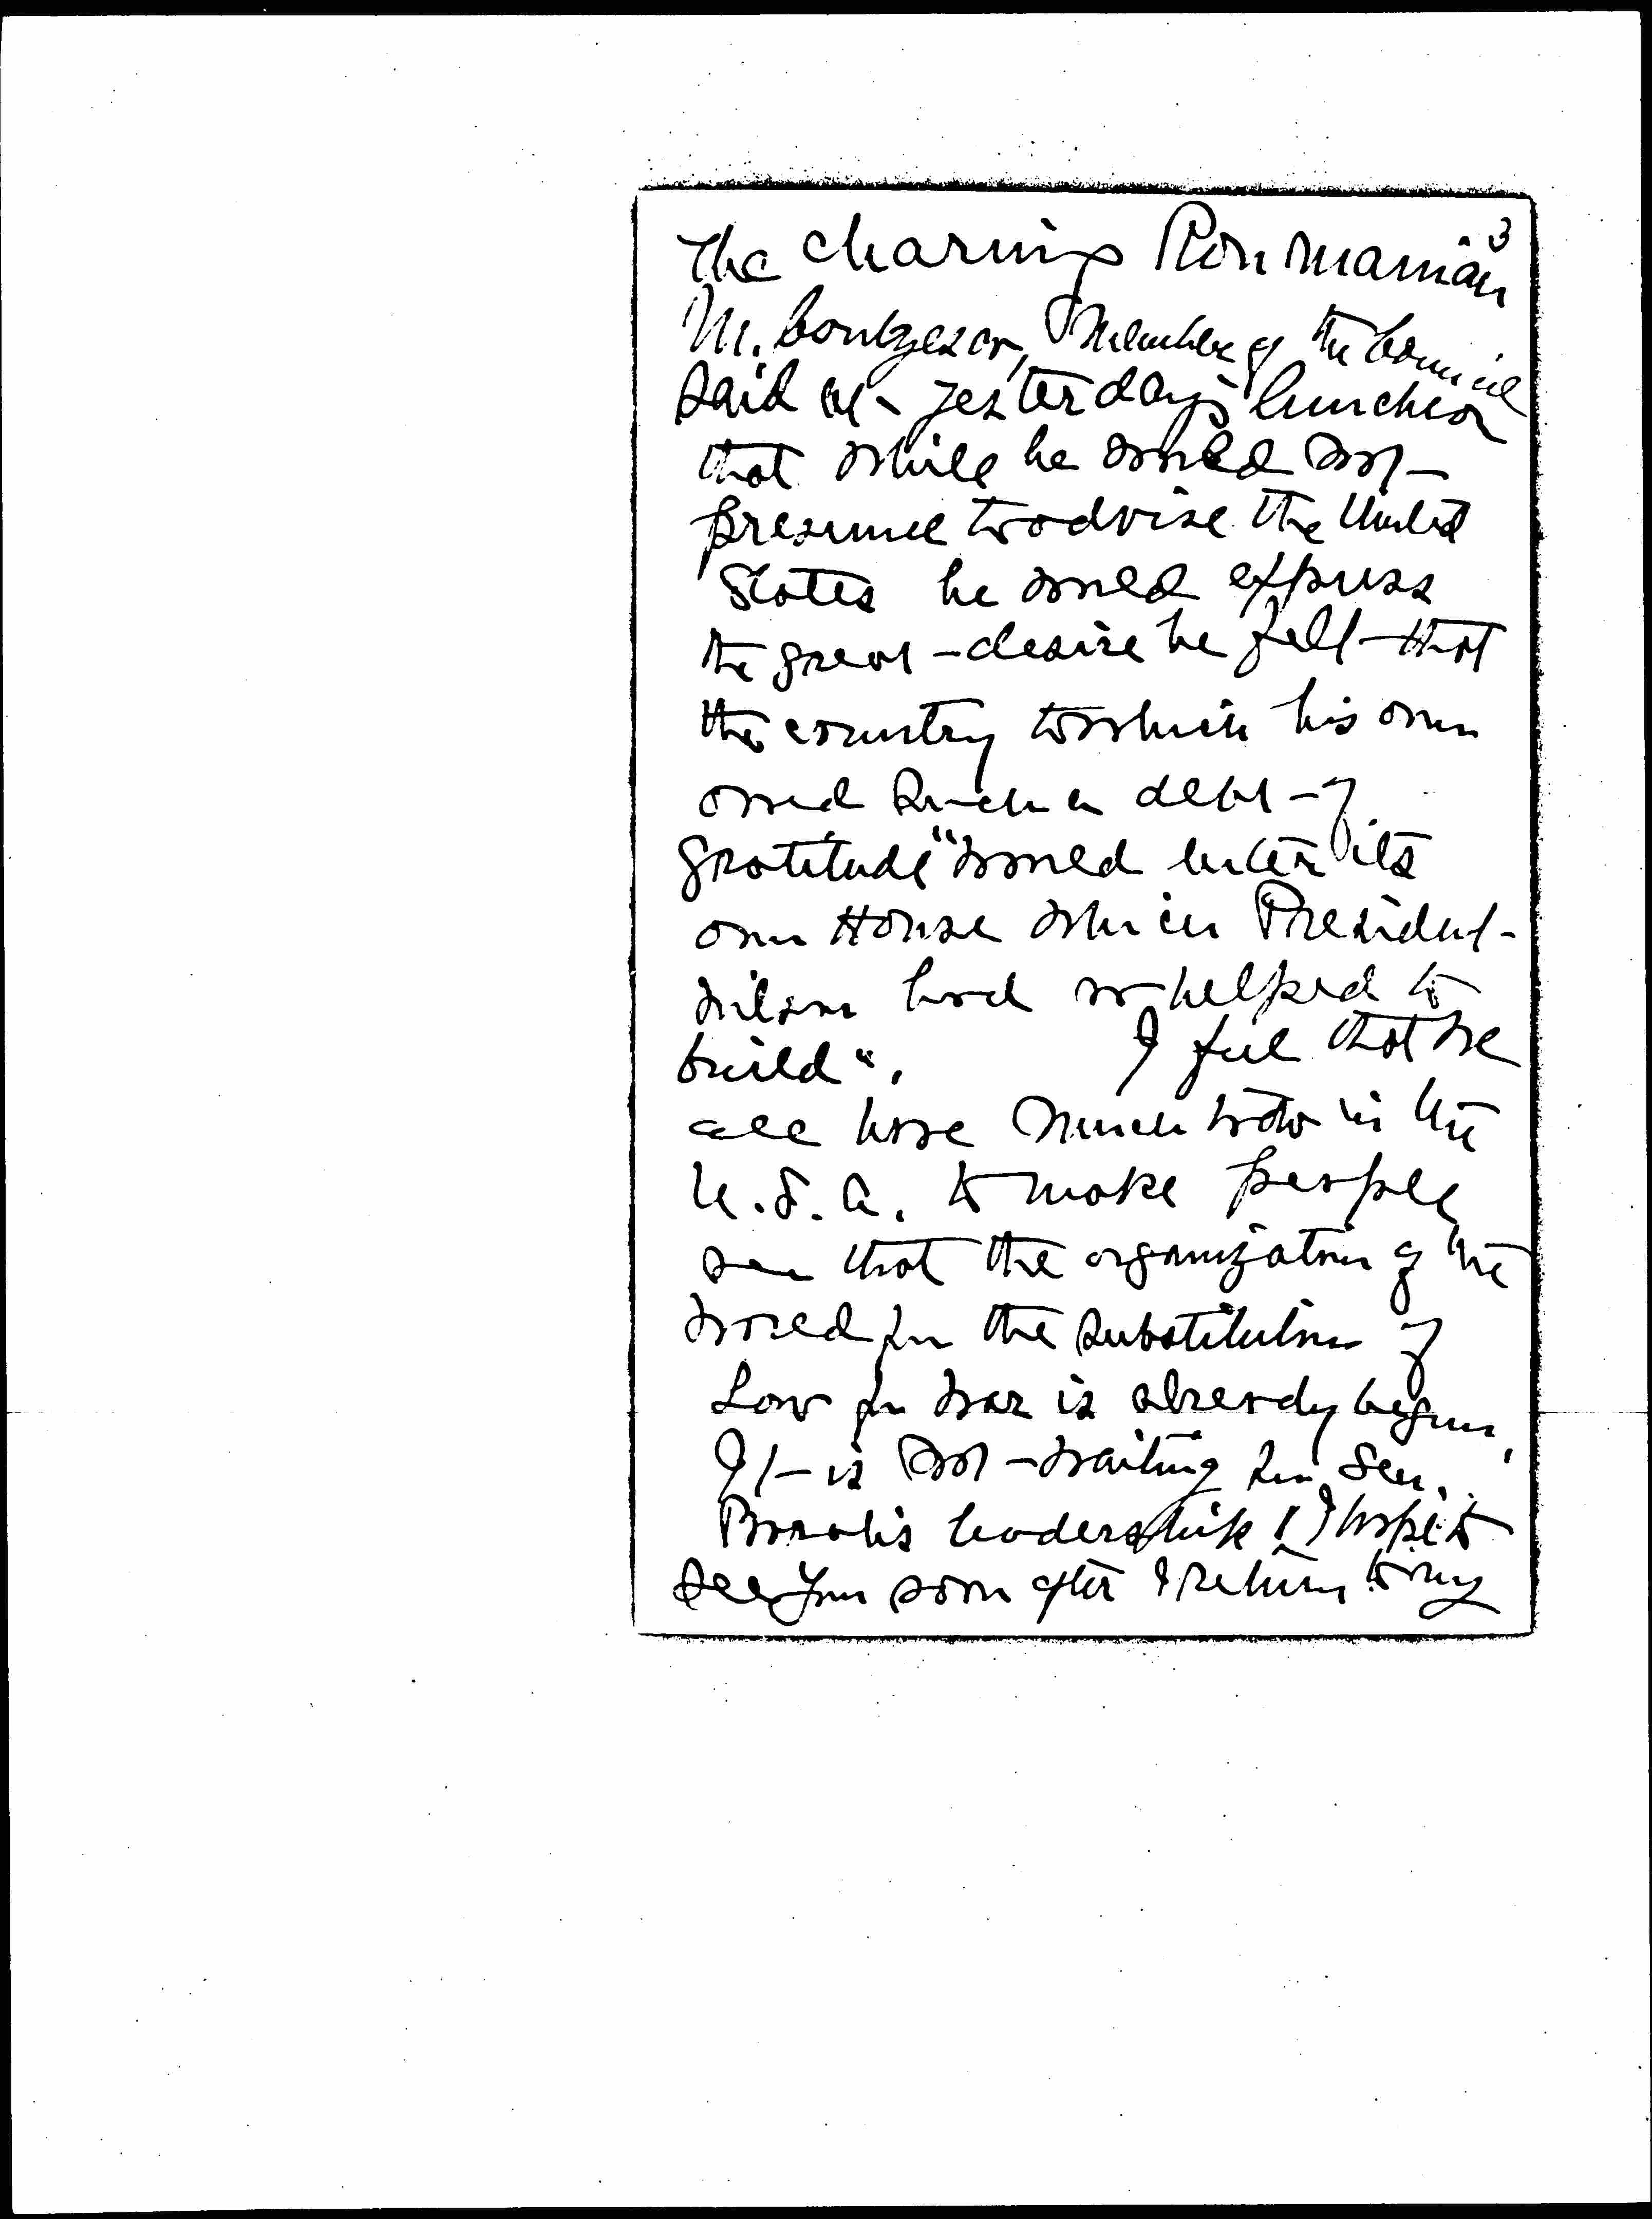 3
The charming Roumanian
M. Contzesco, Member of the Council
said at yesterday's luncheon
that while he would not
presume to advise the United
States he would express
the great desire he felt that
the country to which his own
owed such a debt of
gratitude "would enter its
own House which President
Wilson had so helped to
build". I feel that we
all have much to do in the
U.S.A. to make people
see that the organization of the
world for the substitution of
Law for War is already begun.
It is not waiting for Sen.
Borah's leadership! I hope to
see you soon after I return to my